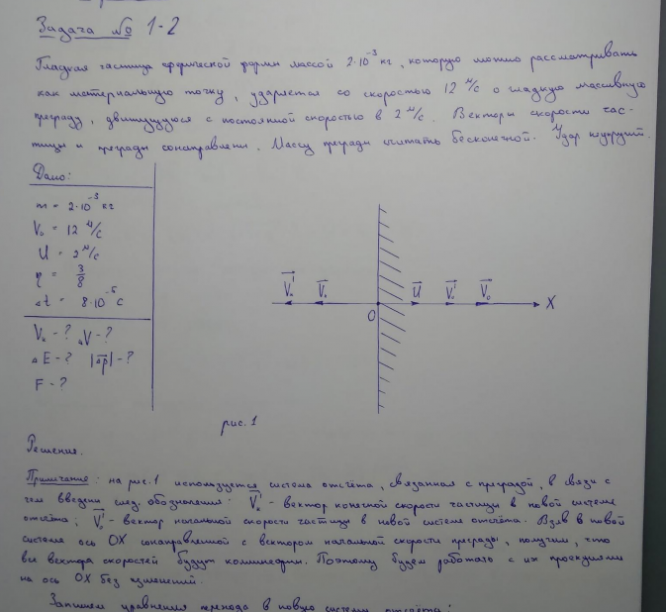 Задача № 1-2
Гладкая частица сферической формы массой 2·10⁻³ кг, которую можно рассматривать
как материальную точку, ударяется со скоростью 12 м/с о гладкую массивную
преграду, движущуюся с постоянной скоростью в 2 м/с. Векторы скорости час-
тицы и преграды сонаправлены. Массу преграды считать бесконечной. Удар неупругий.
Дано:
m = 2·10⁻³ кг
V₀ = 12 м/с
U = 2 м/с
η = 3/8
Δt = 8·10⁻⁵ с
Vₐ - ? ΔV - ?
ΔE - ? |Δp| - ?
F - ?
O U V₀' V₀ X
рис. 1
Решение.
Примечание: на рис. 1 используется система отсчёта, связанная с преградой, в связи с
чем введены след. обозначения: - вектор конечной скорости частицы в новой системе
отсчёта; V₀' - вектор начальной скорости частицы в новой системе отсчёта. Взяв в новой
системе ось OX сонаправленной с вектором начальной скорости преграды, получим, что
все вектора скоростей будут коллинеарны. Поэтому будем работать с их проекциями
на ось OX без
Запишем уравнения перехода в новую систему отсчёта: